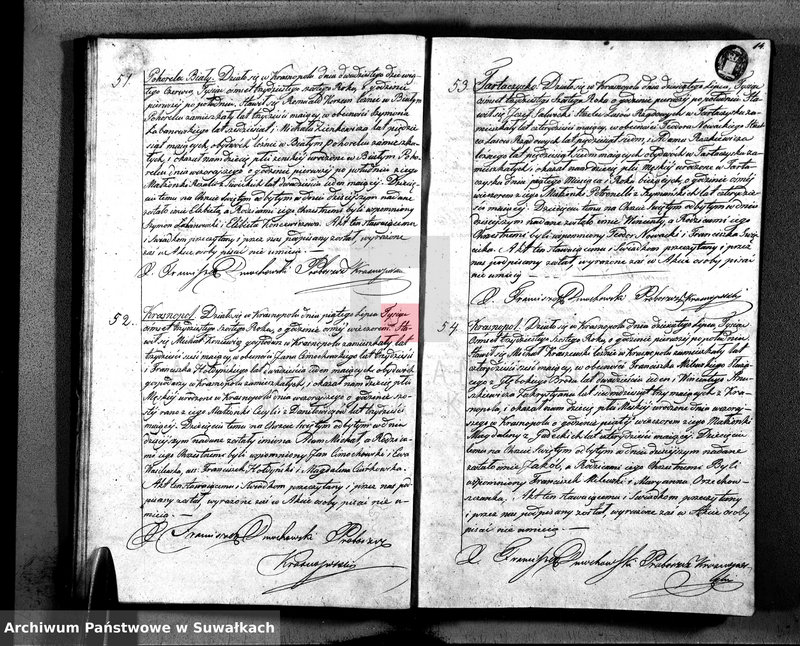 51.
Pokorela Biały. Działo się w Krasnopolu dnia dwudziestego dziewią-
tego Czerwca, Tysiąc ośmset trzydziestego szóstego Roku, o godzinie
pierwszej po południu, Stawił się Romuald Korzon Cerniec w Białym
Pokorelu zamieszkały lat trzydzieści mający, w obecności Szymona
Łabanowskiego lat sześćdziesiąt i Michała Zienkiewicza lat pięćdzie-
siąt mających, obydwóch w Białym Pokorelu zamieszka-
łych, i okazał nam dziecię płci żeńskiej urodzone w Białym Poko-
relu dnia wczorajszego o godzinie pierwszej po południu z jego
Małżonki Rozalii lat dwadzieścia jeden mającej. Dziecię-
ciu temu na Chrzcie Świętym odbytym w dniu dzisiejszym nadane
zostało imie Elżbieta, a Rodzicami jego Chrzestnemi byli wspomniony
Szymon Łabanowski i Elżbieta Korzeniewiczowa. Akt ten stawiającemu
i Świadkom przeczytany i przez nas podpisany został, wyrażone
zaś w Akcie osoby pisać nie umieją.
X. Franciszek Dmochowski Proboszcz Krasnopolski
52.
Krasnopol. Działo się w Krasnopolu dnia piątego Lipca Tysiąc
ośmset trzydziestego szóstego Roku, o godzinie ósmej wieczorem. Sta-
wił się Michał gospodarz w Krasnopolu zamieszkały lat
trzydzieści sześć mający, w obecności Jana Cimochowskiego lat trzydzieści
i Franciszka Hołdyńskiego lat dwadzieścia jeden mających obydwóch
gospodarzy w Krasnopolu zamieszkałych, i okazał nam dziecię płci
Męskiej urodzone w Krasnopolu dnia wczorajszego o godzinie szó-
stej rano z jego Małżonki Cecylii z Danilewiczów lat trzydzieści
mającej. Dziecięciu temu na Chrzcie Świętym odbytym w dniu
dzisiejszym nadane zostały imiona Adam Michał a Rodzica-
mi jego Chrzestnemi byli wspomniony Jan Cimochowski i Ewa
Wasilewska, ass: Franciszek Hołdyński i Magdalena
Akt ten stawiającemu i Świadkom przeczytany i przez nas pod-
pisany został, wyrażone zaś w Akcie osoby pisać nie u-
mieją.
X. Franciszek Dmochowski Proboszcz
Krasnopolski
14
53.
Tartaczysko. Działo się w Krasnopolu dnia dziewiątego Lipca, Tysiąc
ośmset trzydziestego szóstego Roku o godzinie pierwszej po południu. Sta-
wił się Józef Strzelec Lasów Rządowych w Tartaczysku za-
mieszkały lat czterdzieści mający, w obecności Fedora Nowackiego
w Lasów Rządowych lat pięćdziesiąt siedm, i Adama Raczkiewicza
lat pięćdziesiąt siedm mających obydwóch w Tartaczysku za-
mieszkałych, i okazał nam dziecię płci Męskiej urodzone w Tarta-
czysku dnia piątego Miesiąca i Roku bieżących o godzinie ósmej
wieczorem z jego Małżonki Petronelli z lat czterdzie-
ści mającej. Dziecięciu temu na Chrzcie Świętym odbytym w dniu
dzisiejszym nadane zostało imie Wincenty, a Rodzicami jego
Chrzestnemi byli wspomniony Fedor Nowacki i Franciszka
Akt ten stawiającemu i Świadkom przeczytany i przez
nas podpisany został, wyrażone zaś w Akcie osoby pisać
nie umieją
X. Franciszek Dmochowski Proboszcz Krasnopolski
54.
Krasnopol. Działo się w Krasnopolu dnia dziewiątego Lipca, Tysiąc
ośmset trzydziestego szóstego Roku, o godzinie pierwszej po południu.
Stawił się Michał Kraszewski Leśnik w Krasnopolu zamieszkały lat
czterdzieści sześć mający, w obecności Franciszka Milewskiego
z Głębokiego Brodu lat dwadzieścia jeden i Wincentego
Zakrystyana lat siedmdziesiąt trzy mających z Kra-
snopola, i okazał nam dziecię płci Męskiej urodzone dnia wczoraj-
szego w Krasnopolu o godzinie piątej wieczorem z jego Małżonki
Magdaleny z lat czterdzieści mającej. Dziecięciu
temu na Chrzcie Świętym odbytym w dniu dzisiejszym nadane
zostało imie Jakób, a Rodzicami jego Chrzestnemi byli
wspomniony Franciszek Milewski i Maryanna Orzechow-
szewska. Akt ten stawiającemu i Świadkom przeczytany
i przez nas podpisany został, wyrażone zaś w Akcie osoby
pisać nie umieją.
X. Franciszek Dmochowski Proboszcz Krasnopol-
ski
Archiwum Państwowe w Suwałkach